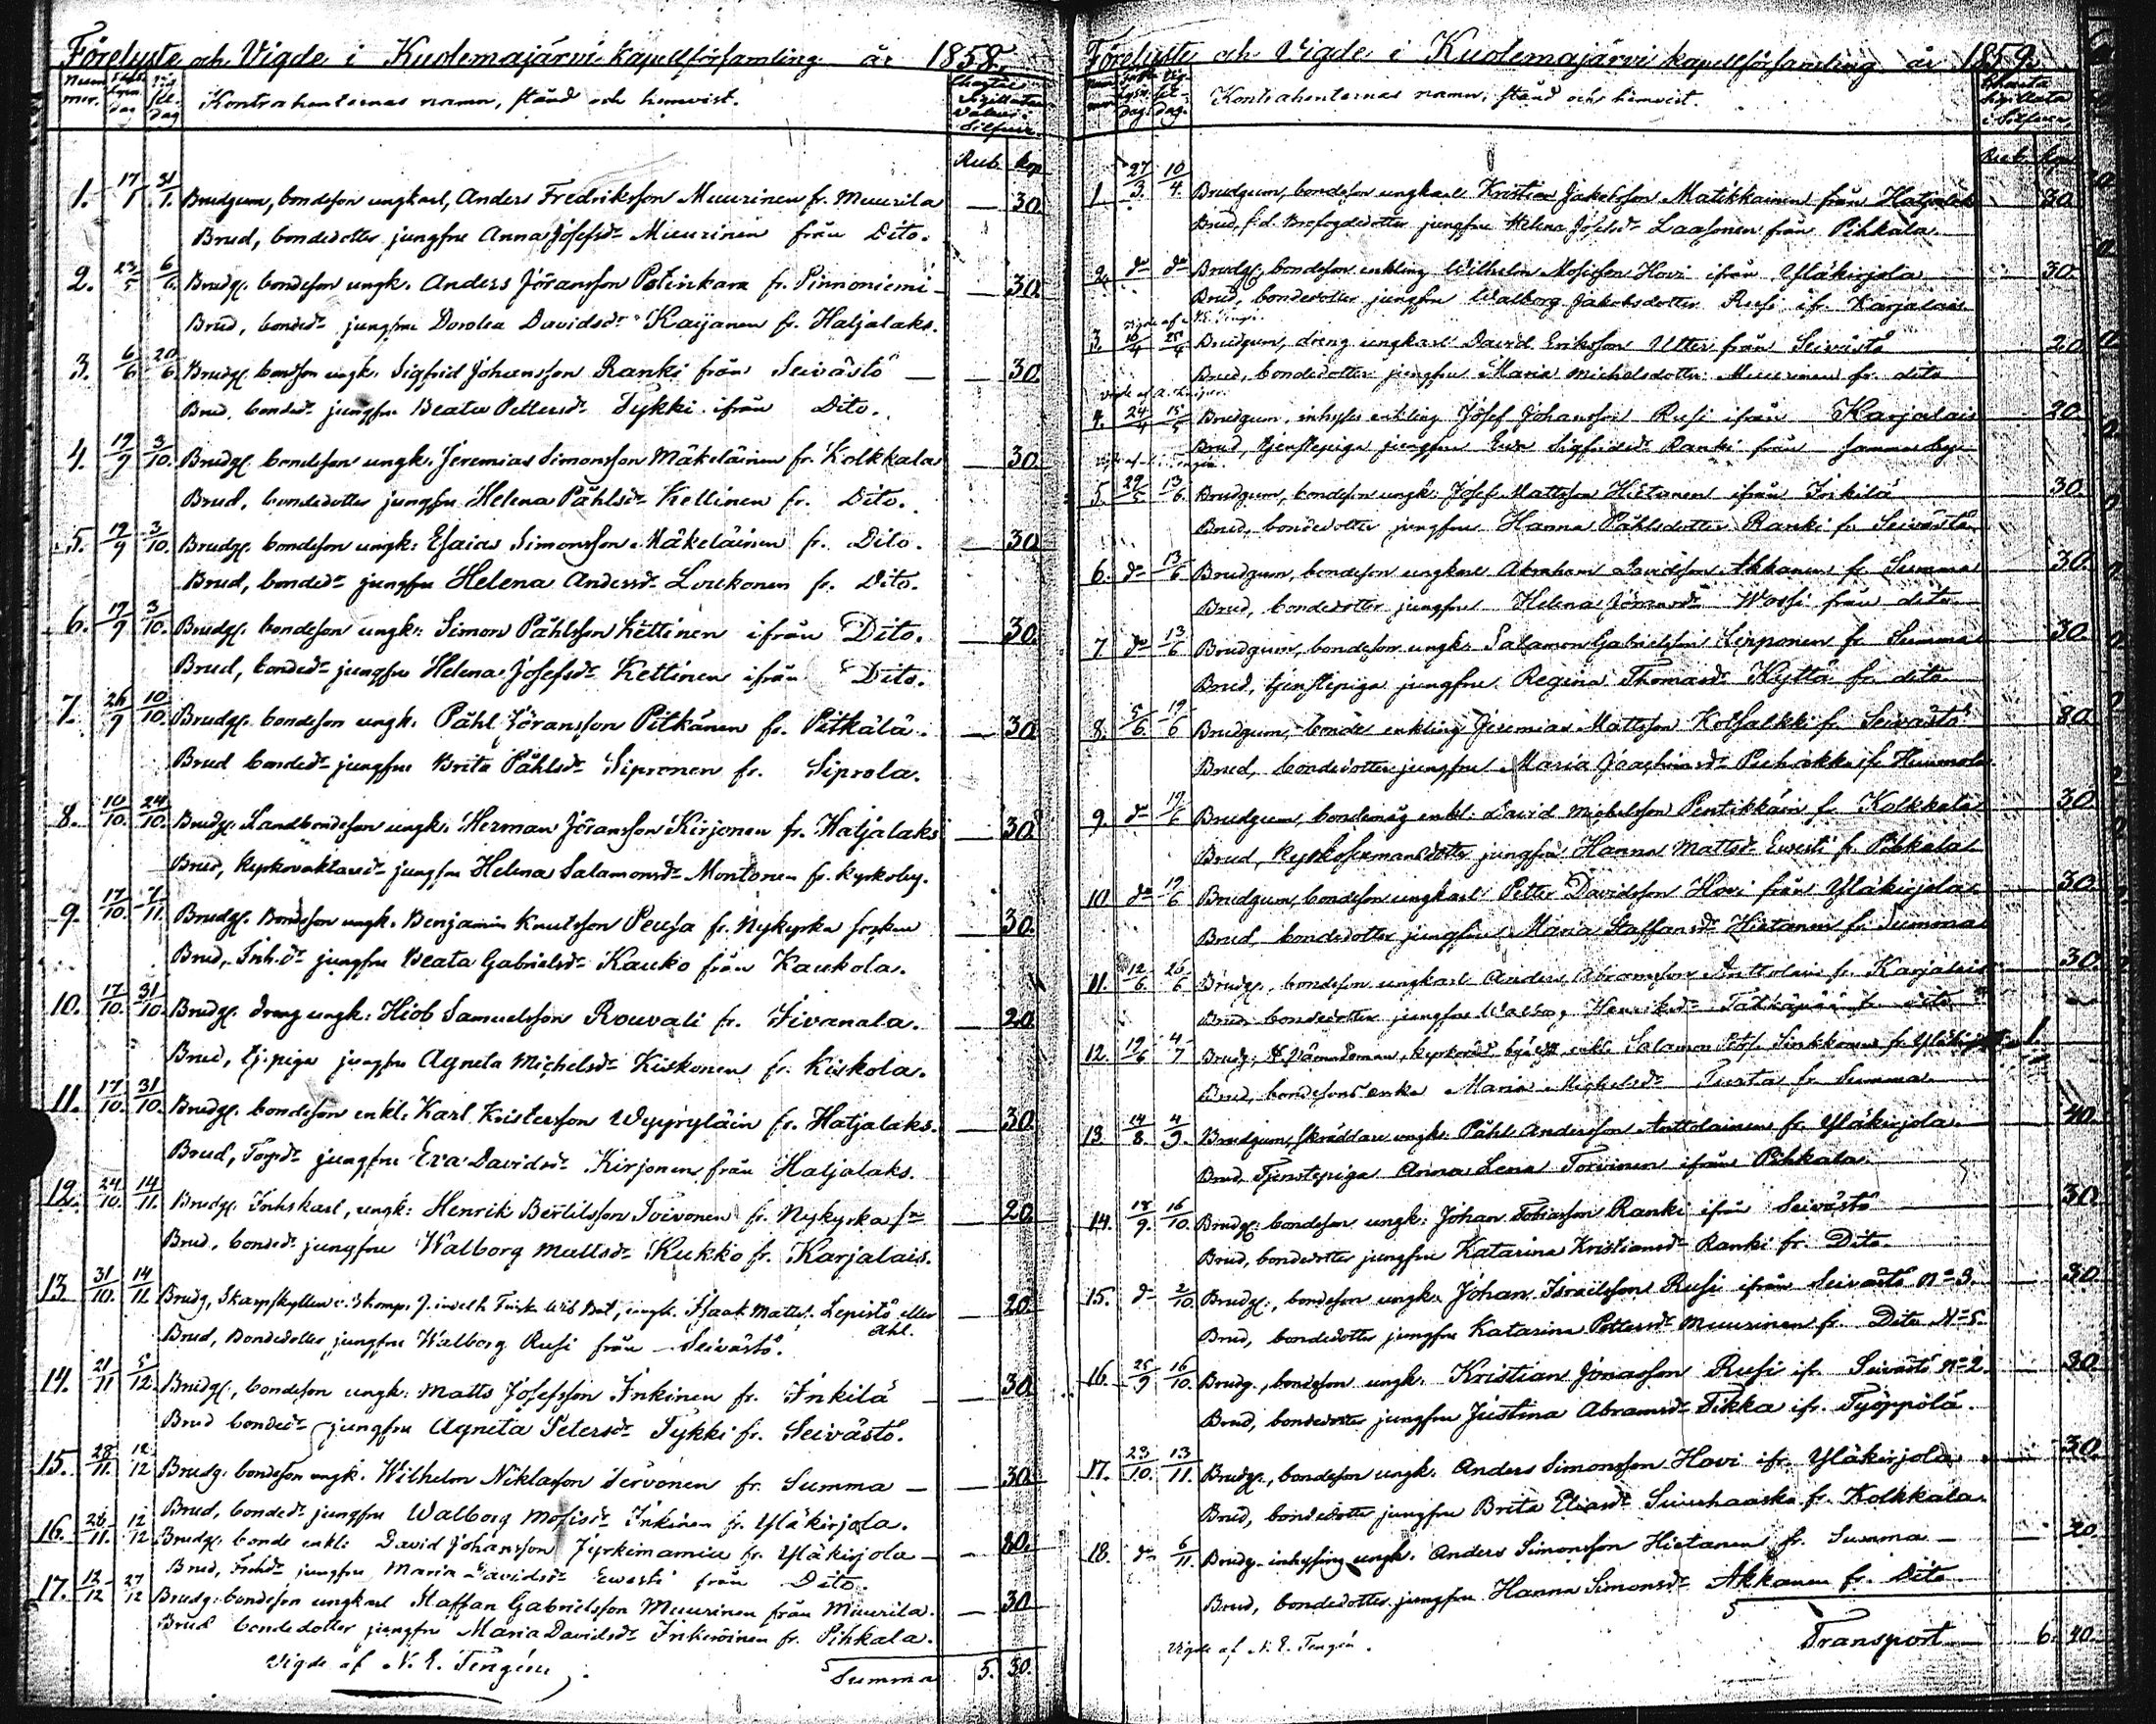 Förelyste och Vigde i Kuolemajärvi kapellförsamling år 1858.
Kontrahenternas namn, stånd och hemvist.
Rub. kop.
1. 17/1 31/1. Brudgum, bondeson ungkarl, Anders Fredriksson Muurinen fr. Muurila — 30.
Brud, bondedotter jungfru Anna Josefsdr Muurinen från Dito.
2. 23/5 6/6. Brudg. bondeson ungk. Anders Jöransson fr. Pinnoniemi — 30.
Brud, bondedr jungfru Dorotea Davidsdr Kaijanen fr. Hatjalaks.
3. 6/6 20/6. Brudg. bondson ungk. Sigfrid Johansson Ranki från Seivästö — 30.
Brud, bondedr jungfru Beata Pettersdr Tykki ifrån Dito.
4. 19/9 3/10. Brudg. bondeson ungk. Jeremias Simonsson Mäkeläinen fr. Kolkkala — 30.
Brud, bondedotter jungfru Helena Påhlsdr Kettinen fr. Dito.
5. 19/9 3/10. Brudg. bondeson ungk. Esaias Simonsson Mäkeläinen fr. Dito. — 30
Brud, bondedr jungfru Helena Andersdr Loukonen fr. Dito.
6. 19/9 3/10. Brudg. bondeson ungk. Simon Påhlsson Kettinen ifrån Dito. — 30.
Brud, bondedr jungfru Helena Josefsdr Kettinen ifrån Dito.
7. 26/9 10/10. Brudg. bondeson ungk. Påhl Jöransson Pitkänen fr. Pitkälä. — 30
Brud bondedr jungfru Brita Påhlsdr Sipronen fr. Siprola.
8. 10/10. 24/10. Brudg. Landbondeson ungk. Herman Jöransson Kirjonen fr. Hatjalaks — 30.
Brud, kyrkovaktaredr jungfru Helena Salamonsdr Montonen fr. kyrkoby.
9. 17/10. 7/11. Brudg. Bondeson ungk. Benjamin Knutsson Peusa fr. Nykyrka socken — 30.
Brud, Inh.dr jungfru Beata Gabrielsdr Kauko från Kaukola.
10. 17/10. 31/10. Brudg. dreng ungk. Hiob Samuelsson Rouvali fr. Sivanala. — 20.
Brud, tj.piga jungfru Agneta Michelsdr Kiskonen fr. Kiskola.
11. 17/10. 31/10. Brudg. bondeson enkl. Karl Kristersson Wyyryläin fr. Hatjalaks. — 30.
Brud, Torpdr jungfru Eva Davidsdr Kirjonen från Hatjalaks.
12. 24/10. 14/11. Brudg. Inhskarl, ungk. Henrik Bertilsson Toivonen fr. Nykyrka sn — 20.
Brud, bondedr jungfru Walborg Mattsdr Kukko fr. Karjalais.
13. 31/10. 14/11. Brudg, Skarpskytten Bat, ungk. Isaak Matts. Lepistö eller Ahl. — 20.
Brud, Bondedotter jungfru Walborg Rusi från Seivästö.
14. 21/11 5/12 Brudg., bondeson ungk. Matts Josefsson Inkinen fr. Inkilä — 30.
Brud bondedr jungfru Agneta Petersdr Tykki fr. Seivästö.
15. 28/11. 12/12 Brudg. bondeson ungk. Wilhelm Niklasson Tervonen fr. Summa — 30.
Brud, bondedr jungfru Walborg Mosisdr Inkinen fr. Yläkirjola.
16. 28/11. 12/12 Brudg. bonde enkl. David Johansson fr. Yläkirjola — 80.
Brud, jungfru Maria Davidsdr Ewesti från Dito.
17. 12/12 27/12 Brudg. bondeson ungkarl Staffan Gabrielsson Muurinen från Muurila. — 30
Brud bondedotter jungfru Maria Davidsdr Inkeröinen fr. Pihkala.
Vigde af N. E. Tengén.
Summa 5. 30.
Förelyste och Vigde i Kuolemajärvi kapellförsamling år 1859.
Kontrahenternas namn, stånd och hemvist.
Rub. kop.
1. 27/3. 10/4. Brudgum, bondeson ungkarl Kristian Jakobsson Matikkainen från Hatjalak 30
Brud, f.d. jungfru Helena Josefsdr Laasonen från Pihkala.
2. do do Brudg. bondeson enkling Wilhelm Mosisson Hovi ifrån Yläkirjola 30.
Brud, bondedotter jungfru Walborg Jakobsdotter Rusi ifr. Karjalais.
3. 10/4 25/4 Brudgum, dreng ungkarl David Eriksson Utter från Seivistö 20
Brud, bondedotter jungfru Maria Michelsdotter Muurinen fr. dito
4. 24/4 15/5 Brudgum, inhyses enkling Josef Johansson Rusi ifrån Karjalais 20.
Brud, tjenstepiga jungfru Eva Sigfridsdr Ranki från samma by
5. 29/5 13/6. Brudgum, bondeson ungk. Josef Mattsson Hietanen ifrån Inkilä 30.
Brud, bondedotter jungfru Hanna Påhlsdotter Ranki fr. Seivästö.
6. do 13/6 Brudgum, bondeson ungkarl Abraham Davidsson Akkanen fr. Summa 30.
Brud, bondedotter jungfru Helena från dito.
7 do 13/6 Brudgum, bondeson ungk. Salamon Gabrielsson Sinponen fr. Summa 30.
Brud, tjenstepiga jungfru Regina Thomasdr Kyttä fr. dito
8. 5/6. 19/6 Brudgum, bonde enkling Jeremias Mattsson Kotsalkki fr. Seivästö 80
Brud, bondedotter jungfru Maria Joachimsdr fr. Hummola
9. do 19/6 Brudgum, bondemåg enkl. David Michelsson Pentikkäin fr. Kolkkala 30
Brud, jungfru Hanna Mattsdr Ewesti fr. Pihkala
10 do 19/6 Brudgum, bondeson ungkarl Petter Davidsson Hovi från Yläkirjola 30.
Brud, bondedotter jungfru Maria Staffansdr Hietanen fr. Summa
11. 12/6 26/6 Brudg., bondeson ungkarl Anders Abramsson Anttolain fr. Karjalais 30.
Brud, bondedotter jungfru Walborg Henriksdr fr. dito
12. 19/6 4/7 Brudg. enkl. Salamon Sinkkonen fr. Yläkirjola 1.
Brud, bondesons enka Maria Michelsdr Turta fr. Summa
13 14/8. 4/9. Brudgum, skräddare ungk. Påhl Andersson Anttolainen fr. Yläkirjola 40.
Brud, Tjenstepiga Anna Lena Torvinen ifrån Pihkala
14. 18/9. 16/10. Brudg. bondeson ungk. Johan Tobiasson Ranki ifrån Seivästö 30.
Brud, bondedotter jungfru Katarina Kristiansdr Ranki fr. Dito
15. do 2/10. Brudg., bondeson ungk. Johan Israelsson Rusi ifrån Seivästö No 3. 30.
Brud, bondedotter jungfru Katarina Pettersdr Muurinen fr. Dito No 5
16. 25/9 16/10. Brudg., bondeson ungk. Kristian Jonasson Rusi ifr. Seivästö No 2. 30
Brud, bondedotter jungfru Justina Abramsdr Tikka ifr. Työppölä.
17. 23/10. 13/11. Brudg., bondeson ungk. Anders Simonsson Hovi ifr. Yläkirjola 30.
Brud, bondedotter jungfru Brita Eliasdr Suurhaaska fr. Kolkkala
18. do 6/11. Brudg. inhysing ungk. Anders Simonsson Hietanen fr. Summa — 20.
Brud, bondedotter jungfru Hanna Simonsdr Akkanen fr. Dito
Vigde af N. E. Tengén.
Transport 6. 40.